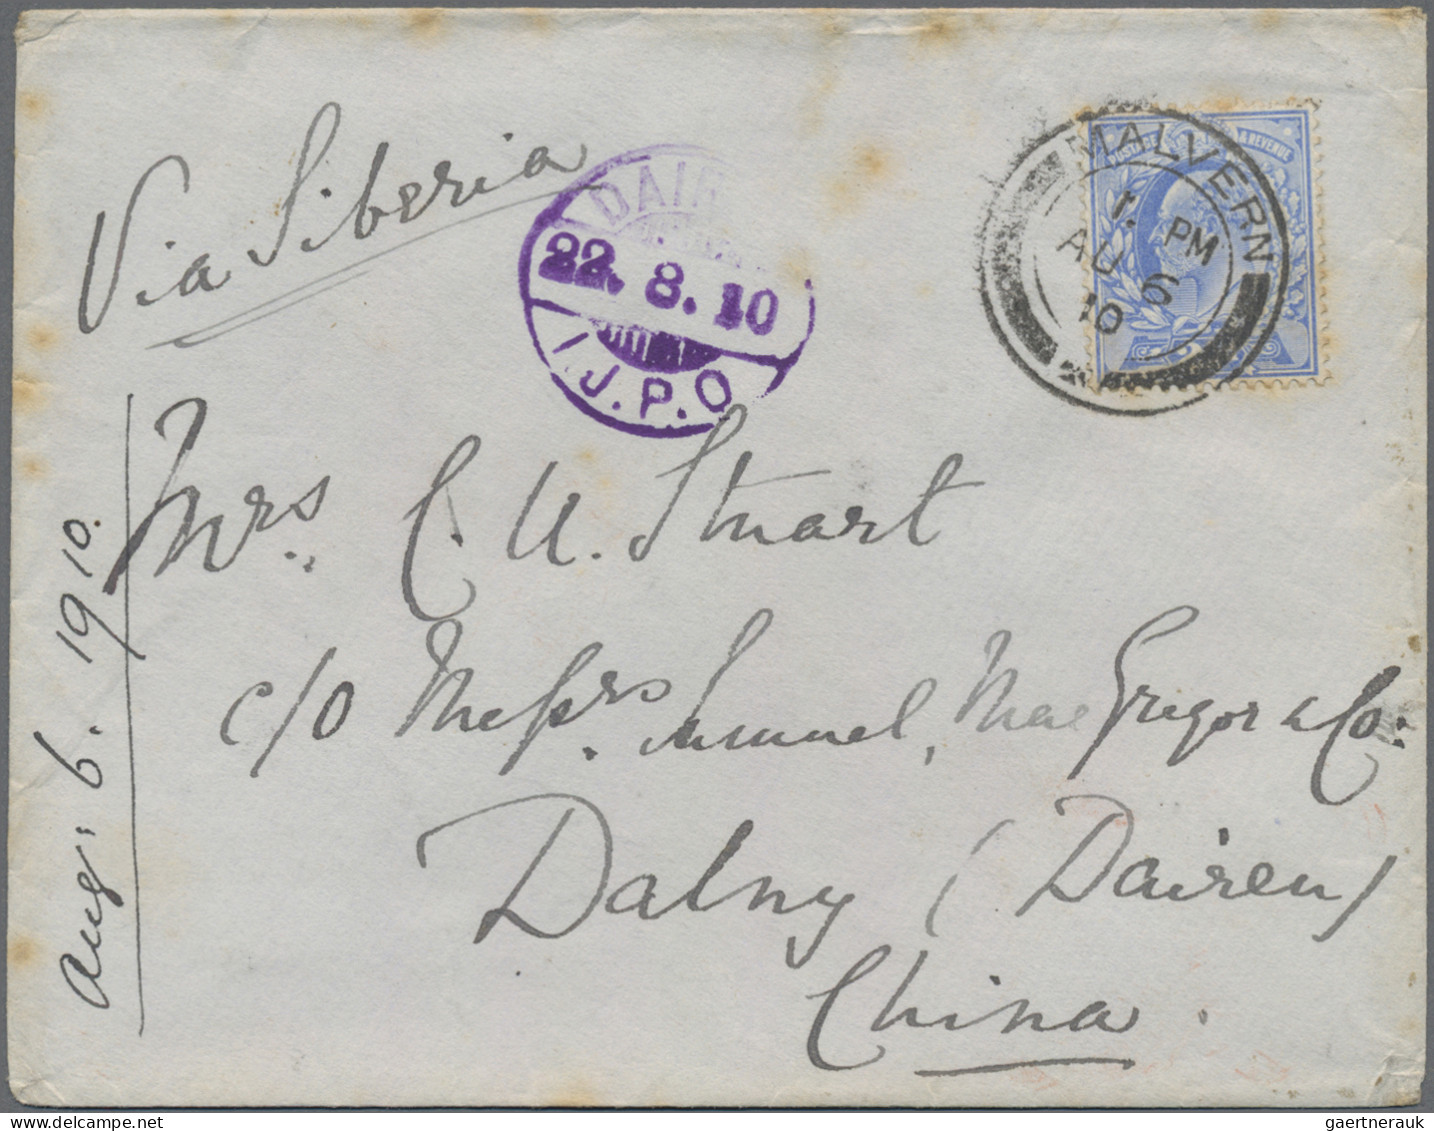 Via Siberia
DAIR
22. 8. 10
I.J.P.O
MALVERN
1. PM
AU 6
10
POSTAGE & REVENUE
Mrs. C. U. Stuart
c/o Messrs. Samuel, MacGregor & Co:
Dalny (Dairen)
China.
Aug: 6. 1910.
gaertnerauk @ delcampe.net